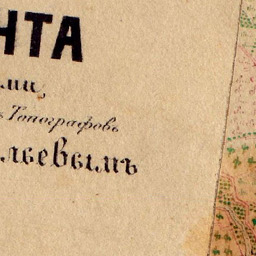 НТА
ми,
Топографовъ
льевымъ